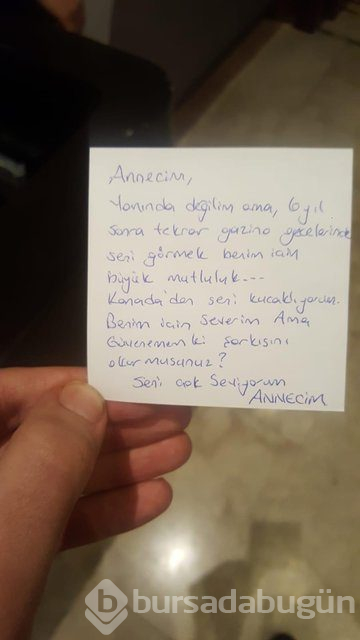 Annecim,
Yanında değilim ama, 6 yıl
sonra tekrar gazino gecelerinde
seni görmek benim için
büyük mutluluk...
Kanada'dan seni kucaklıyorum.
Benim için Severim Ama
Güvenemem ki şarkısını
okur musunuz?
Seni çok Seviyorum
ANNECİM
b bursadabugün